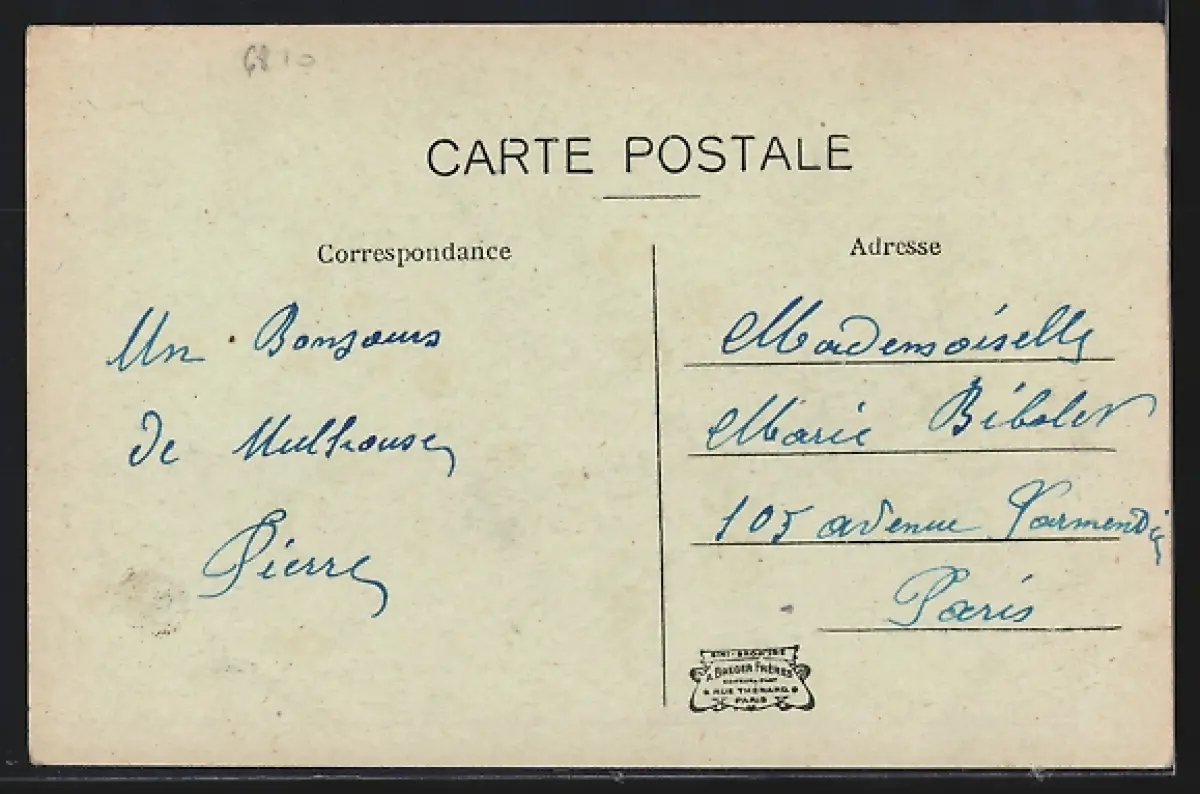 6810
CARTE POSTALE
Correspondance
Adresse
Un Bonjour
de Mulhouse
Pierre
Mademoiselle
Marie Bibolet
105 avenue Parmentier
Paris
A. BREGER FRÈRES
9 RUE THÉNARD 9
PARIS